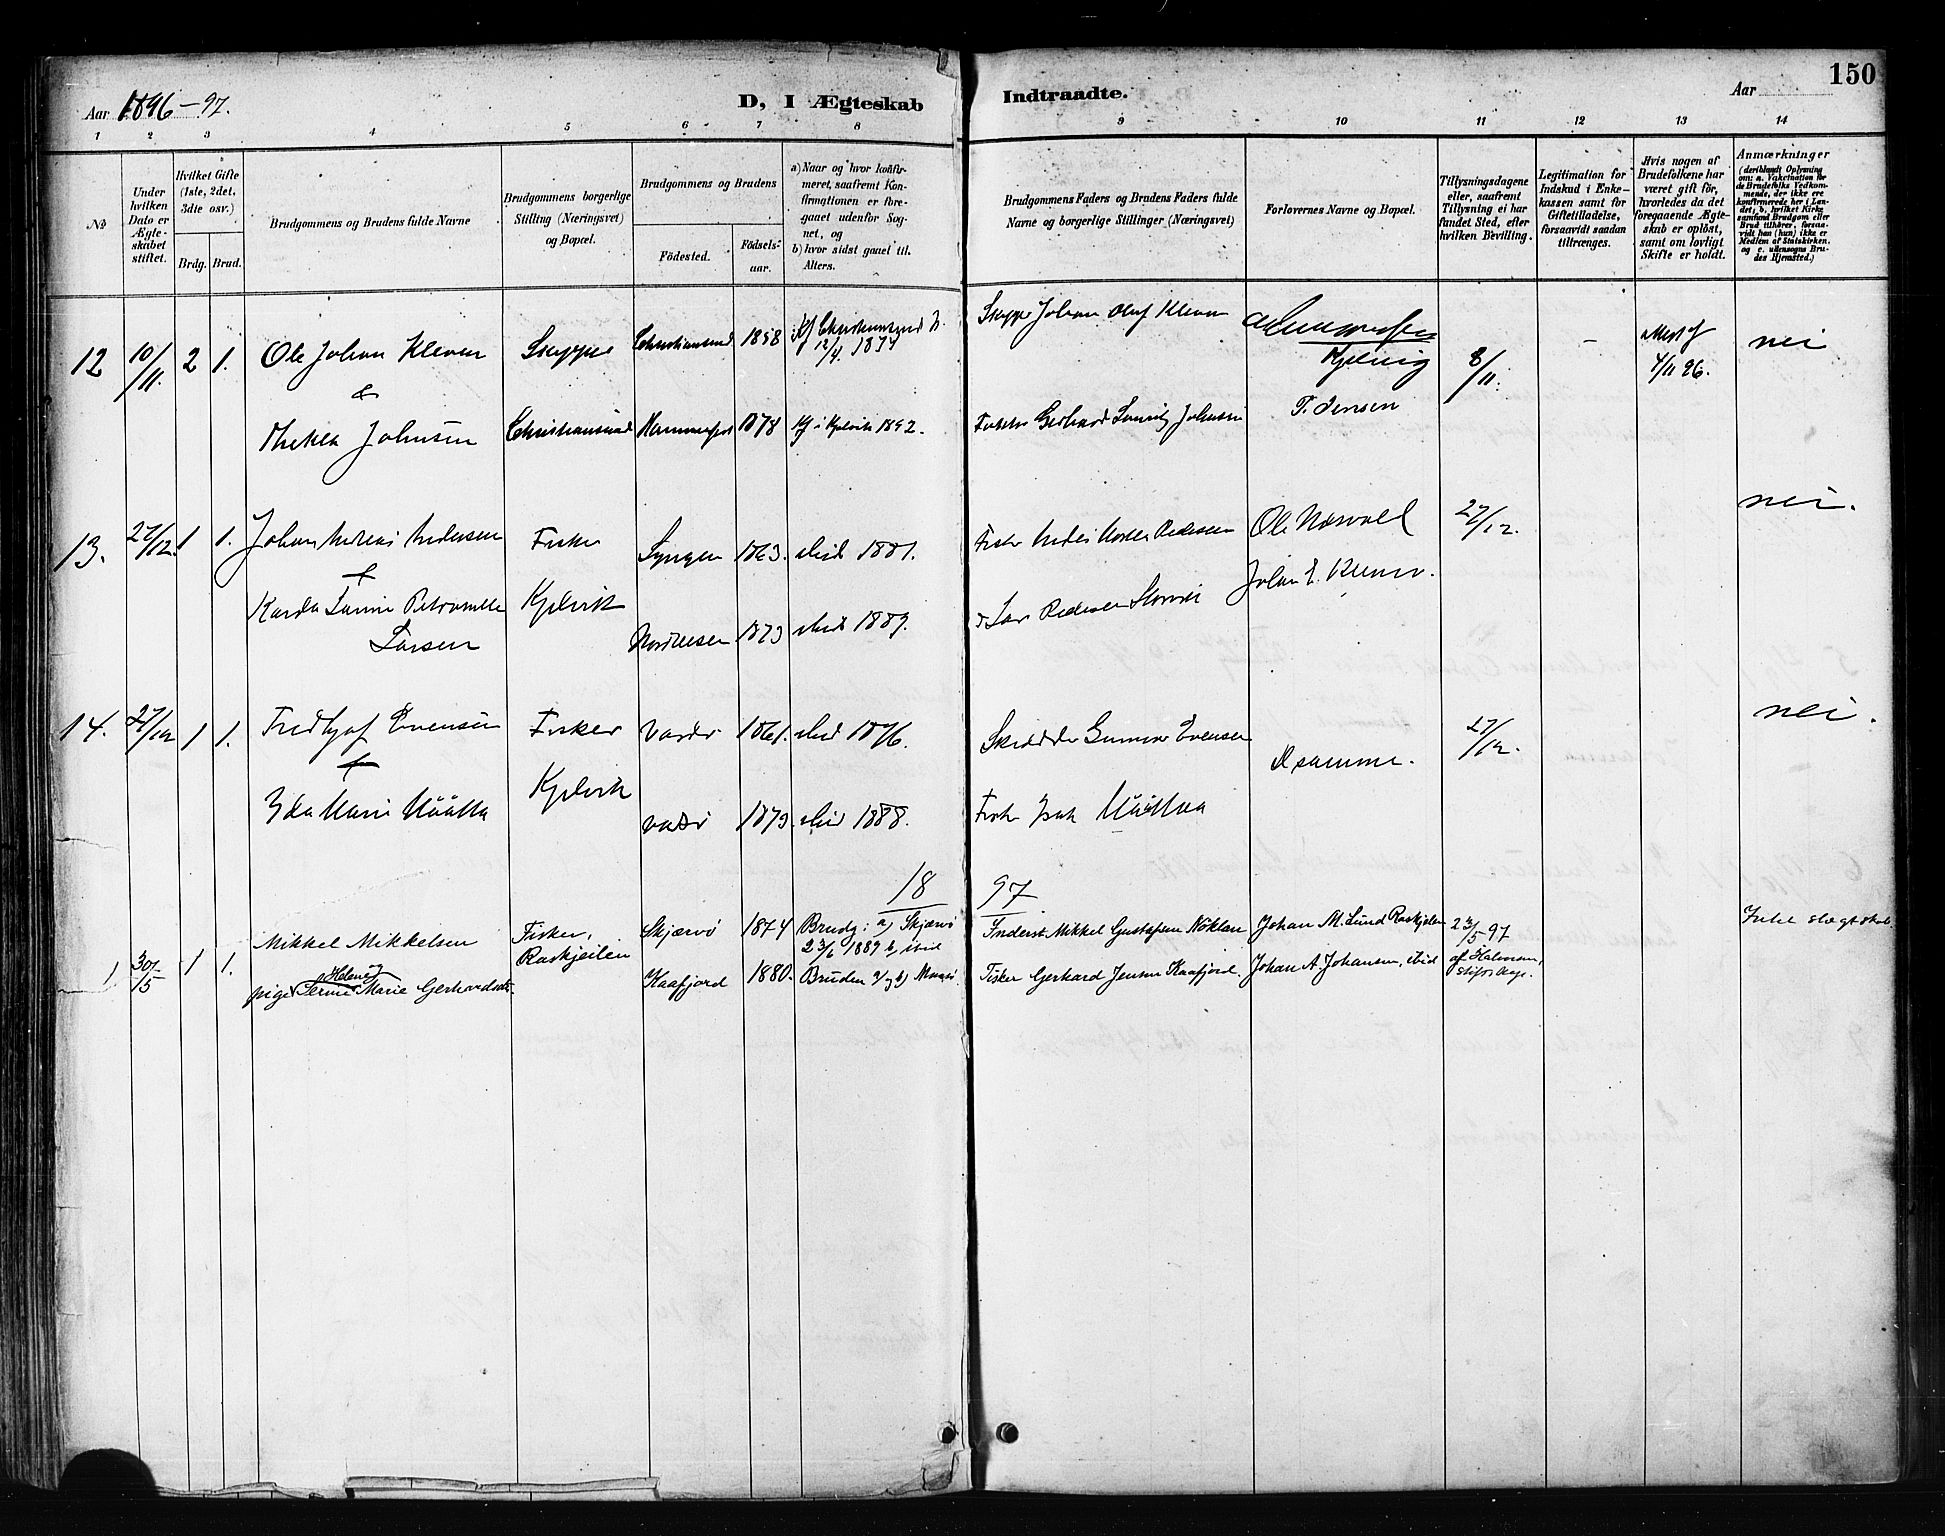 150
Aar 1896-97.
D, I Ægteskab
Indtraadte.
Aar
1 2 3 4 5 6 7 8 9 10 11 12 13 14
No
Under hvilken Dato er Ægteskabet stiftet.
Hvilket Gifte (1ste, 2det, 3die osv.)
Brdg. Brud.
Brudgommens og Brudens fulde Navne
Brudgommens borgerlige Stilling (Næringsvei) og Bopæl.
Brudgommens og Brudens
Födested.
Födsels-aar.
a) Naar og hvor konfirmeret, saafremt Konfirmationen er foregaaet udenfor Sognet, og
b) hvor sidst gaaet til Alters.
Brudgommens Faders og Brudens Faders fulde Navne og borgerlige Stillinger (Næringsvei)
Forlovernes Navne og Bopæl.
Tillysningsdagene eller, saafremt Tillysning ei har fundet Sted, efter hvilken Bevilling.
Legitimation for Indskud i Enkekassen samt for Giftetilladelse, forsaavidt saadan tiltrænges.
Hvis nogen af Brudefolkene har været gift för, hvorledes da det foregaaende Ægteskab er oplöst, samt om lovligt Skifte er holdt.
Anmærkninger (deriblandt Oplysning om: a. Vakcination for de Brudefolks Vedkommende, der ikke ere konfirmerede her i Landet; b. hvilket Kirkesamfund Brudgom eller Brud tilhörer, forsaavidt han (hun) ikke er Medlem af Statskirken, og c. udensogns Brudes Hjemsted.)
12 10/11 2 1. Ole Johan Kleven Christiansund 1858 Kf Christiansund 12/4. 1874 Johan Olaf Kleven 8/11. - 4/11 96. nei
&
Thekla Johnsen Christiansund Hammerfest 1878 Kf i Kjelvik 1892. Fisker Gerhard Johnsen T. Jensen
13. 27/12 1 1. Johan Andreas Andersen Fisker Lyngen 1863. ibid 1881. Fisker Pedersen Ole Norvoll 27/12. nei.
+
Larsen Kjelvik 1873 ibid 1889. Lars Pedersen
14. 27/12 1 1. Fridtjof Evensen Fisker Vardö 1861. ibid 1876. Gunnar Evensen D samme. 27/12. nei.
+
Ida Marie Määtta Kjelvik Vadsö 1873. ibid 1888. Fisker Isak Määttaa
18 97
1 30/5 1 1. Mikkel Mikkelsen Fisker, Raskjeilen Skjærvö 1874 Brudg: a) Skjærvö 23/6 1889 b) ibid Inderst Mikkel Gustafsen Nöklan Johan M. Lund Raskjeilen 23/5 97
pige Marie Gerhardsdtr. Kaafjord 1880. Bruden a) og b) Maasö. Fisker Gerhard Jensen Kaafjord. Johan A. Johansen, ibid